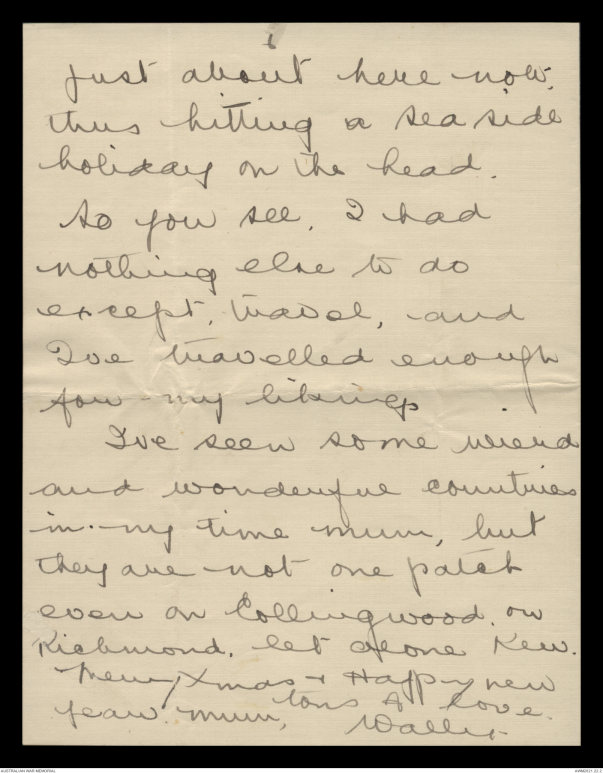 6
just about here now,
thus hitting a sea side
holiday on the head.
So you see, I had
nothing else to do
except, travel, and
I've travelled enough
for my liking.
I've seen some wierd
and wonderful countries
in my time mum, but
they are not one patch
even on Collingwood. or
Richmond, let alone Kew.
Merry Xmas + Happy new
year mum, tons of love.
Wally.
AUSTRALIAN WAR MEMORIAL